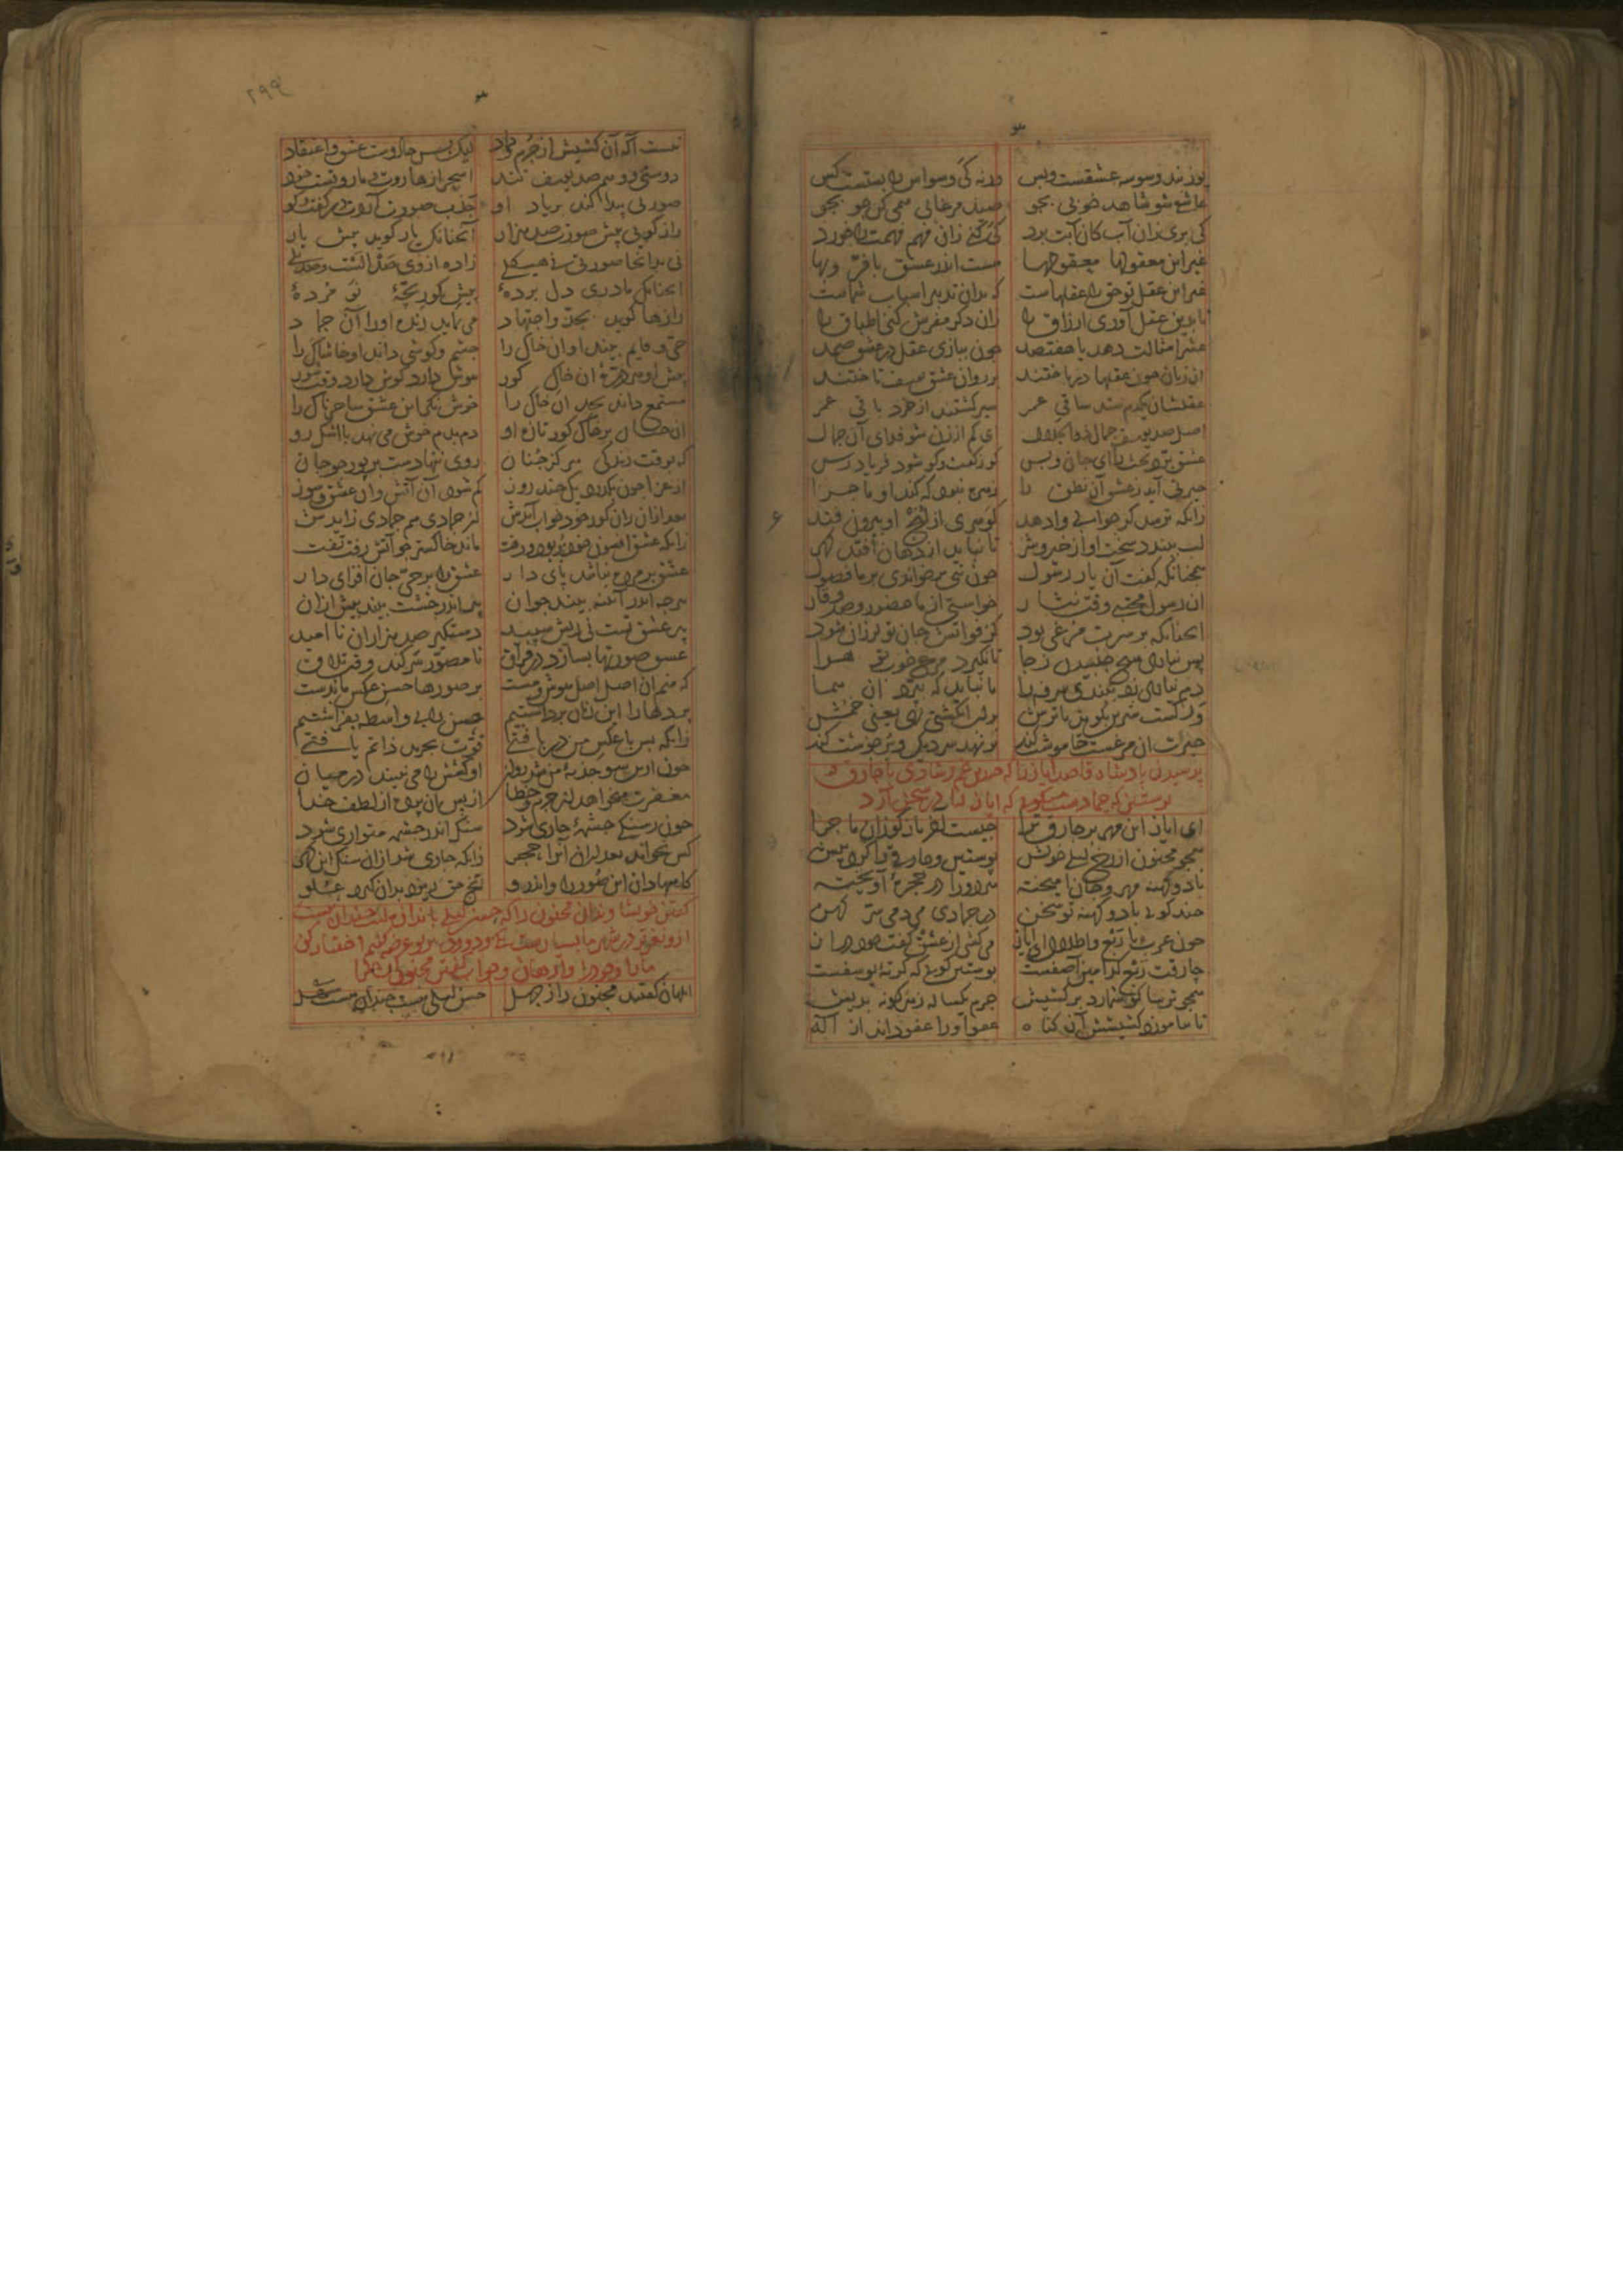 پوزبند وسوسه عشقست و بس ورنه کی وسواس را بستست کس
عاشقی شو شاهد خوبی بجو صید مرغابی همی کن جو بجو
کی بری زان آب کان آبت برد کی کنی زان فهم فهمت را خورد
غیر این معقولها معقولها هست اندر عشق با فر و بها
غیر این عقل تو حق را عقلهاست که بدان تدبیر اسباب شماست
تا بدین عقل آوری ارزاق را زان دکر مفرش کنی اطباق را
عشر امثالت دهد یا هفتصد چون ببازی عقل در عشق صمد
ان زنان چون عقلها درباختند بر رواق عشق یوسف تاختند
عقلشان یکدم ستد ساقی عمر سیر کشتند از خرد باقی عمر
اصل صد یوسف جمال ذو الجلال ای کم از زن شو فدای آن جمال
عشق برد بحث را ای جان و بس کو ز کفت و کو شود فریاد رس
حیرتی آید ز عشق آن نطق را زهره نبود که کند او ماجرا
زانکه ترسد کر جوابی وا دهد کوهری از لنج او بیرون فتد
لب ببندد سخت او از خیر و شر تا نباید از دهان افتد کهر
همچنانکه کفت آن یار رسول چون نبی بر خواندی بر ما فصول
ان رسول مجتبی وقت نثار خواستی از ما حضور و صد وقار
انچنانکه بر سرت مرغی بود کز فواتش جان تو لرزان شود
پس نیاری هیچ جنبیدن ز جا تا نکیرد مرغ خوب تو هوا
دم نیاری زد ببندی سرفه را تا نباید که بپرد ان هما
ور کست شیرین بکوید یا ترش بر لب انکشتی نهی یعنی خمش
حیرت ان مرغست خاموشت کند بر نهد سر دیک و پر جوشت کند
پرسیدن پادشاه قاصدا ایاز را که چندین غم و شادی با چارق و
پوستین که جمادست میکویی که ایاز را در سخن آرد
ای ایاز این مهر بر چارق چرا چیست اخر باز کو زان ماجرا
همچو مجنون از رخ لیلی خویش پوستین و چارقی را کرده پیش
با دو کهنه مهر و جان امیخته هر دو را در حجره آویخته
چند کویی با دو کهنه تو سخن در جمادی می دمی سر کهن
چون عرب با ربع و اطلال ای ایاز می کشی از عشق کفت خود دراز
چارقت ربع کدامین آصفست پوستین کویی که کرته یوسفست
همچو ترسا کو شمارد بر کشیش جرم یکساله
تا بیامرزد کشیشش آن کناه عفو او را عفو داند از اله
نیست آکه آن کشیش از جرم و داد لیک بس جادوست عشق و اعتقاد
دوستی و وهم صد یوسف تند اسحر از هاروت و ماروتست خود
صورتی پیدا کند بر یاد او جذب صورت آردت در کفت و کو
راز کویی پیش صورت صد هزار آنچنانک یار کوید پیش یار
نی بدانجا صورتی نی هیکلی زاده از وی صد الست و صد بلی
انچنانک مادری دل برده پیش کور بچه نو مرده
رازها کوید بجد و اجتهاد می نماید زنده او را آن جماد
حی و قایم بیند او ان خاک را چشم و کوشی داند او خاشاک را
پیش او هر ذره ان خاک کور هوش دارد کوش دارد وقت شور
مستمع داند بجد ان خاک را خوش نکر این عشق ساحرناک را
ان بر خاک کور تازه او دم بدم خوش می نهد با اشک رو
که بوقت زندکی هرکز چنان روی ننهادست بر پور چو جان
از عزا چون بکذرد یک چند روز کم شود آن آتش وان عشق و سوز
بعد ازان زان کور خود خواب آیدش از جمادی هم جمادی زایدش
زانکه عشق افسون خود ربود و رفت ماند خاکستر چو آتش رفت تفت
عشق بر مرده نباشد پای دار عشق را بر حی جان افزای دار
هرچه اندر آینه بیند جوان پیر اندر خشت بیند پیش ازان
پیر عشق تست نی ریش سپید دستکیر صد هزاران نا امید
عشق صورتها بسازد در فراق نا مصور سر کند وقت تلاق
که منم ان اصل اصل هوش و مست بر صورها حسن عکس ما بدست
پردها را این زمان برداشتم حسن را بی واسطه بفراشتم
زانکه بس با عکس من دریافتی قوت تجرید ذاتم یافتی
چون ازین سو جذبه من شد روان او کشیش را می نبیند در میان
مغفرت میخواهد از جرم و خطا از پس ان پرده از لطف خدا
چون ز سنکی چشمه جاری شود سنک اندر چشمه متواری شود
کس نخواند بعد ازان آنرا حجر زانکه جاری شد ازان سنک این کهر
کاسها دان این صور را و اندرو آنچ حق ریزد بدان کیرد علو
کفتن خویشاوندان مجنون را که حسن لیلی باندازه ایست چندان نیست
ازو نغزتر در شهر ما بسیارست یکی و دو و ده بر تو عرضه کنیم اختیار کن
ما را و خود را وارهان و جواب کفتن مجنون ایشانرا
ابلهان کفتند مجنون را ز جهل حسن لیلی نیست چندان هست سهل